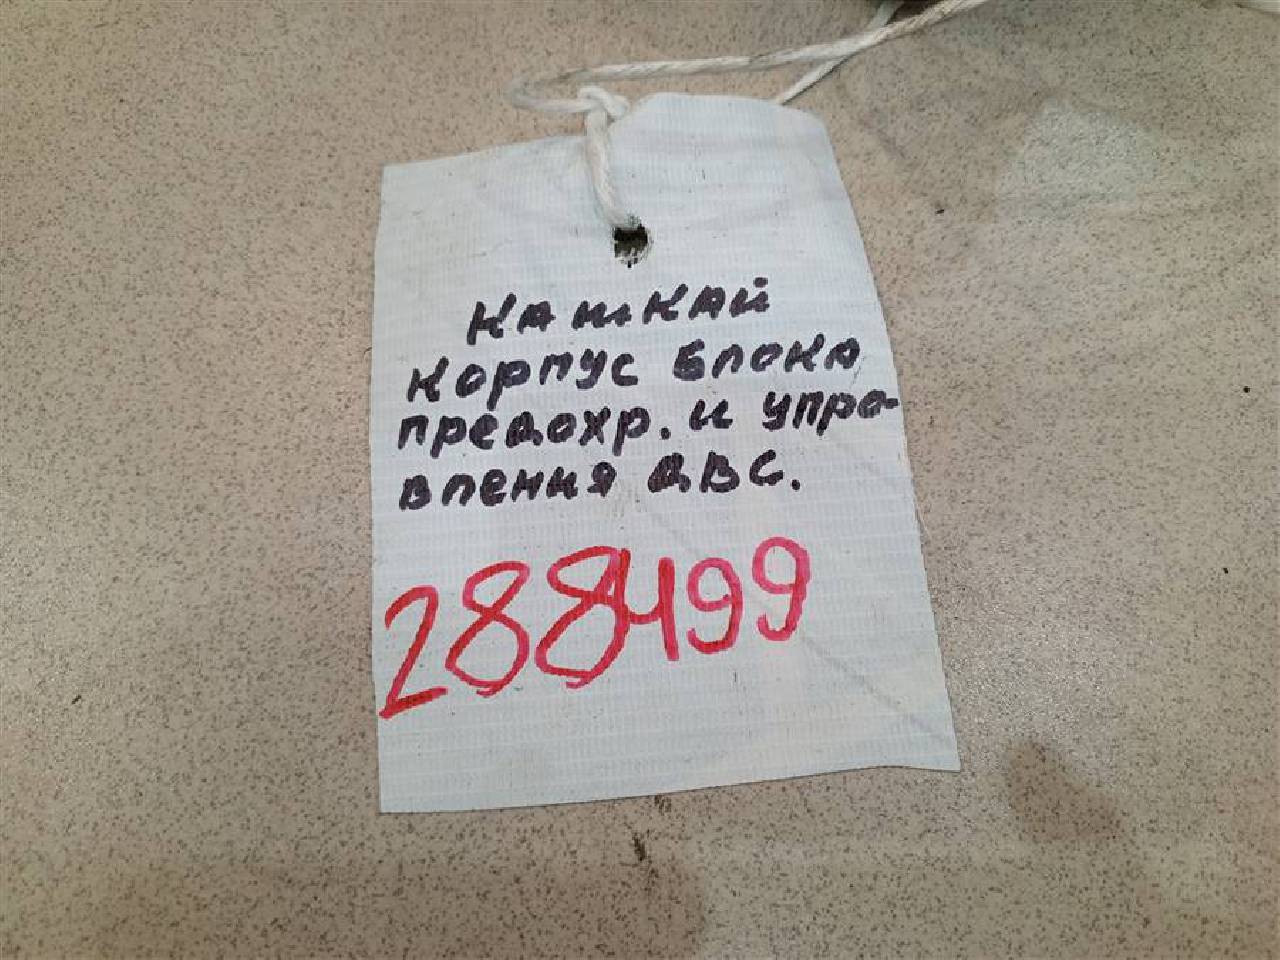 Кашкай
корпус блока
предохр. и упра-
вления ДВС.
288499